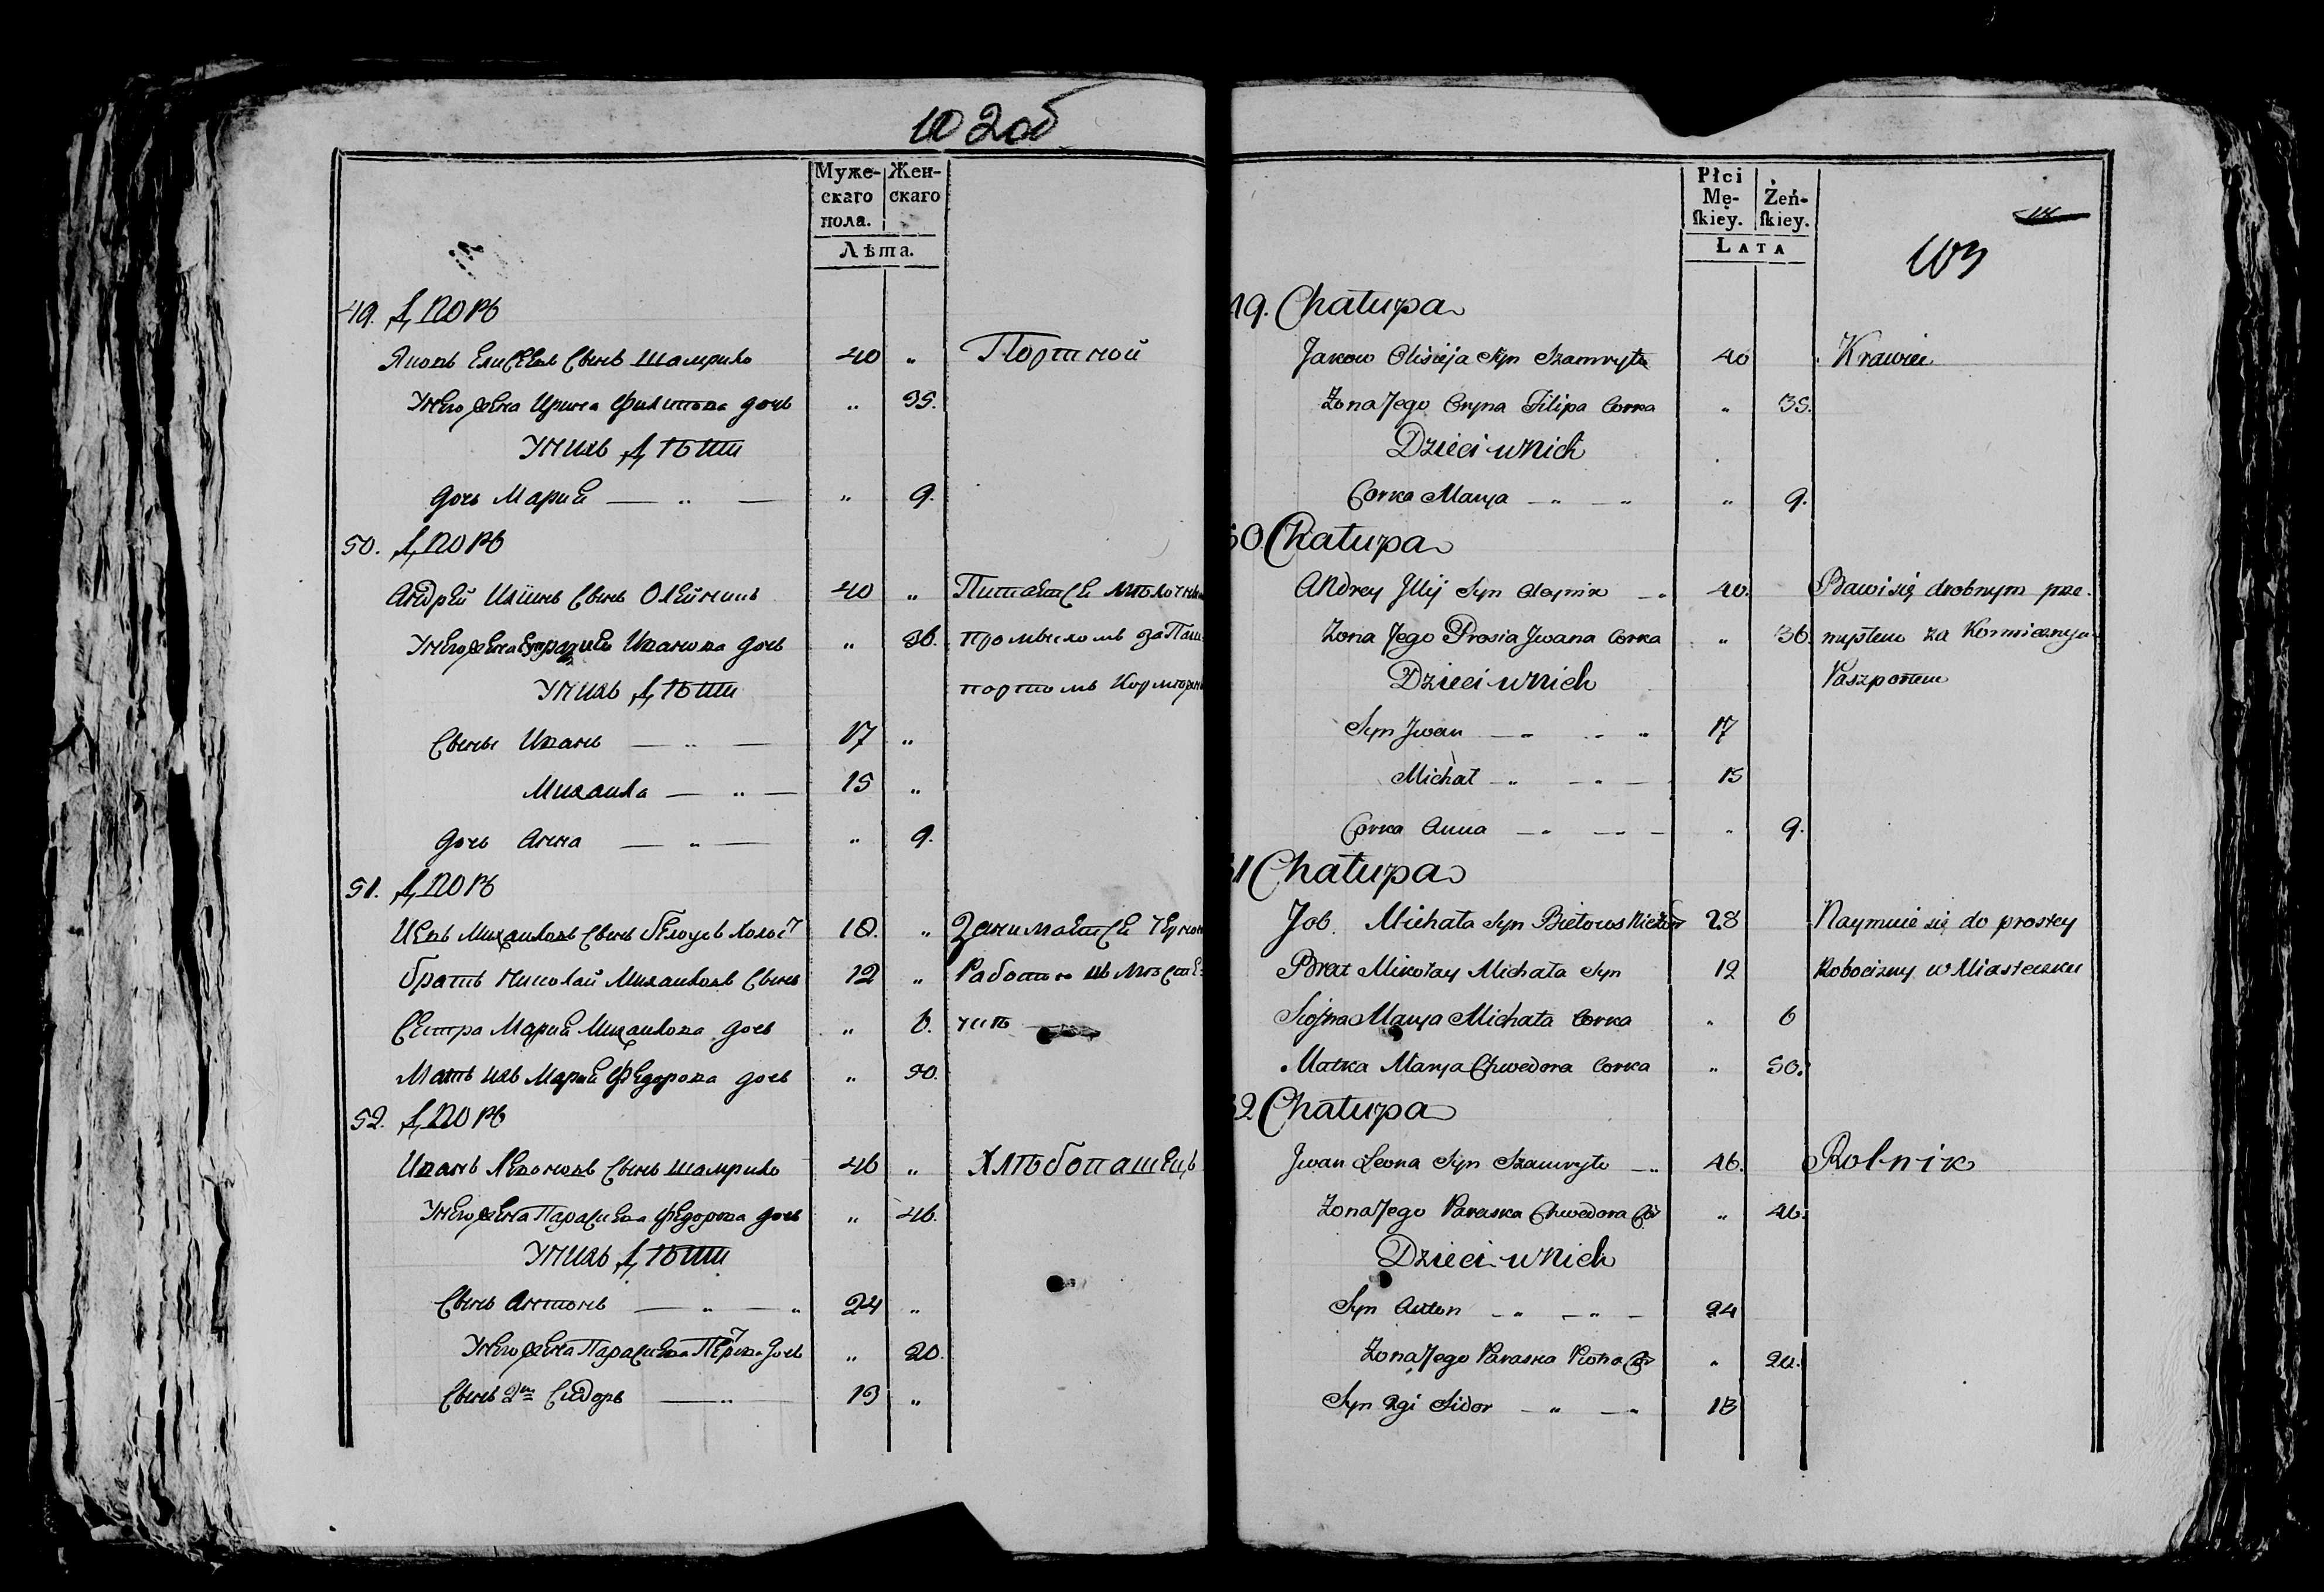 102об
Муже- Жен-
скаго скаго
пола.
Лѣта.
49. Дворъ
Яковъ Елисеевъ сынъ Шамрило 40 „ Портной
У него жена Ирина Филипова дочь „ 35.
У нихъ дѣти
дочь Мария — „ — „ 9.
50. Дворъ
Андрей Илiинъ сынъ Олейникъ 40 „ Питается мѣлочным
У него жена Ефросиня Иванова дочь „ 36. промысломъ за Паш-
У нихъ дѣти портомъ Кормч
Сыны Иванъ — „ — 17 „
Михаила — „ — 15 „
дочь Анна — „ — „ 9.
51. Дворъ
Иевъ Михаиловъ сынъ Белоусъ холост 18. „ Занимается черно
братъ Николай Михаиловъ сынъ 12 „ работою въ мѣсте-
Сестра Мария Михаилова дочь „ 6. чкѣ
Мать ихъ Мария Федорова дочь „ 50.
52. Дворъ
Иванъ Левоновъ сынъ Шамрило 46 „ Хлѣбопашецъ
У него жена Парасцева Федорова дочь „ 46.
У нихъ дѣти
Сынъ Антонъ — „ — „ 24 „
У него жена Парасцева Петрова дочь „ 20.
Сынъ 2й Сидоръ — „ 13 „
Płci Żeń-
Mę- ſkiey.
ſkiey.
LATA
103
49. Chałupa
Jakow Olisieja Syn Szamryło 40 Krawiec
Żona Jego Oryna Filipa Corka „ 35.
Dzieci u Nich
Corka Marya — „ — „ „ 9.
50. Chałupa
Andrey Jllij Syn Oleynik — „ 40. Bawi się drobnym prze-
Żona Jego Prosia Jwana Corka „ 36. mysłem za
Dzieci u Nich Paszportem
Syn Jwan — „ - „ 17
Michał — „ — „ — 15
Corka Anna — „ — „ — „ 9.
51 Chałupa
Job. Michała Syn Biełous 28 Naymuie się do prostey
Brat Mikołay Michała Syn 12 Robocizny w Miasteczku
Siostra Marya Michała Corka „ 6
Matka Marya Chwedora Corka „ 50.
52. Chałupa
Jwan Leona Syn Szamryło — „ 46. Rolnik
Żona Jego Paraska Chwedora Cór „ 46.
Dzieci u Nich
Syn Anton — „ — „ — 24
Żona Jego Paraska Piotra Cór „ 20.
Syn 2gi Sidor — „ — „ 13